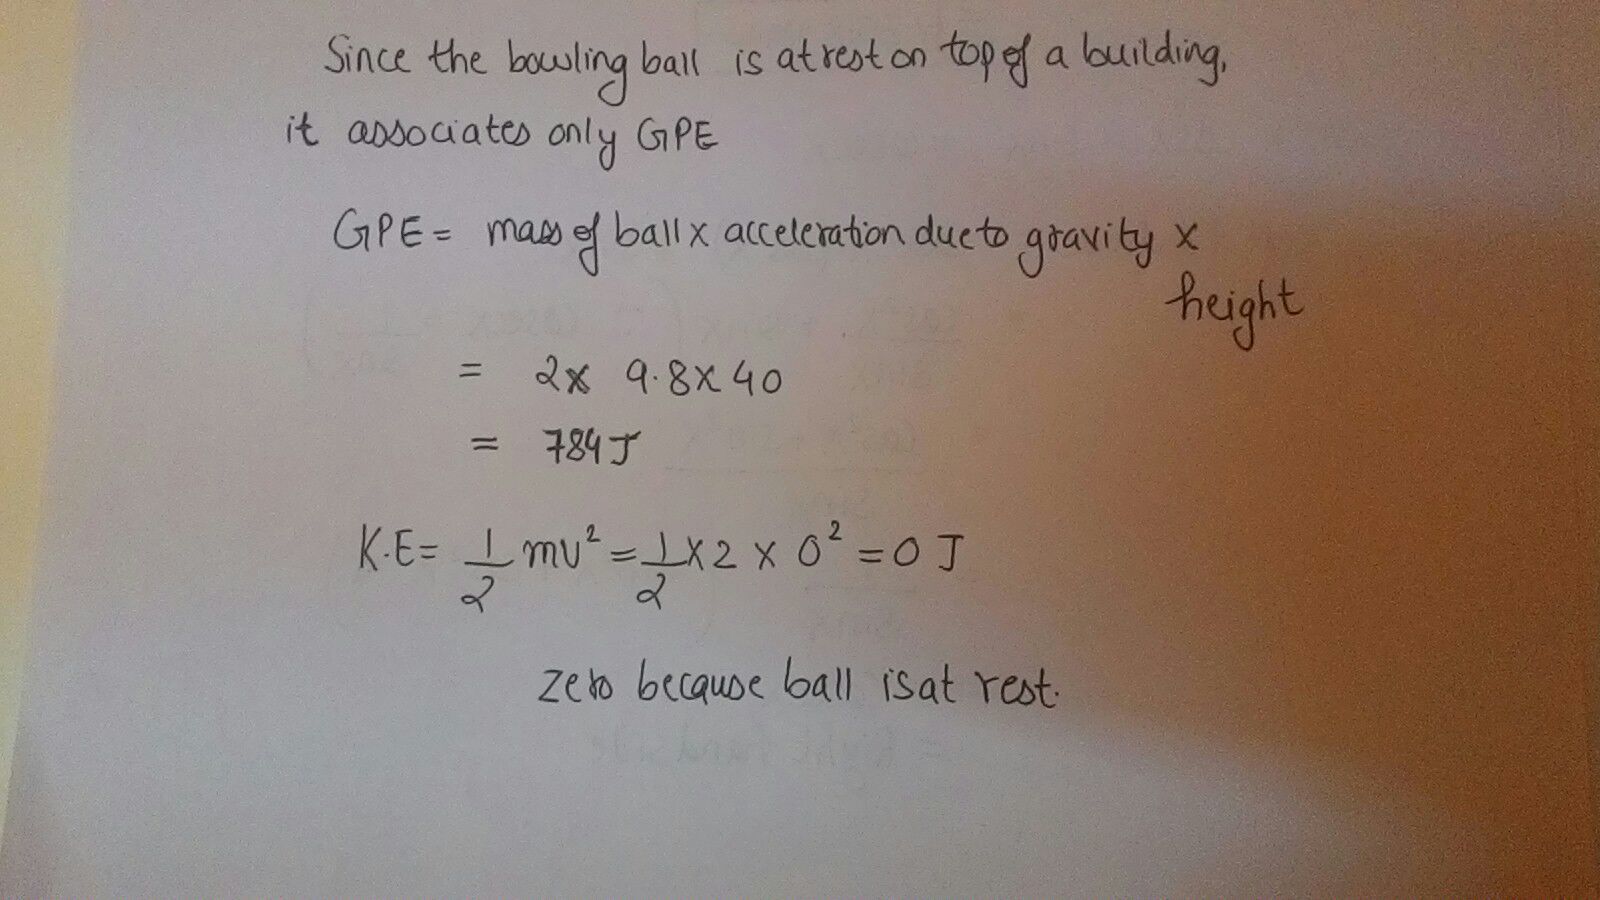 Since the bowling ball is at rest on top of a building,
it associates only GPE
GPE = mass of ball x acceleration due to gravity x
height
= 2 x 9.8 x 40
= 784 J
K.E = 1/2 mv² = 1/2 x 2 x 0² = 0 J
zero because ball is at rest.